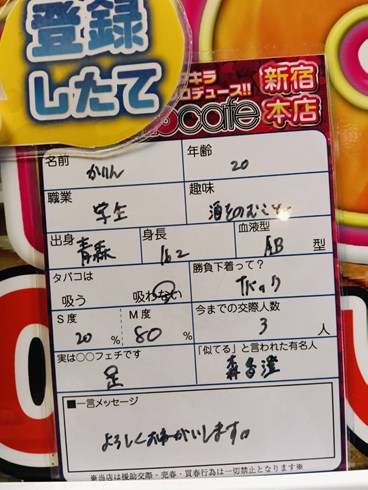 登録
したて
キラ
ロデュース!!
cafe
新宿
本店
名前 かりん 年齢 20
職業 学生 趣味 酒をのむこと
出身 青森 身長 162 血液型 AB 型
タバコは 吸う 吸わない 勝負下着って? Tバック
S度 20 % M度 80 % 今までの交際人数 3 人
実は○○フェチです 足 「似てる」と言われた有名人 森香澄
■一言メッセージ
よろしくおねがいします。
※当店は援助交際・売春・買春行為は一切禁止となります※